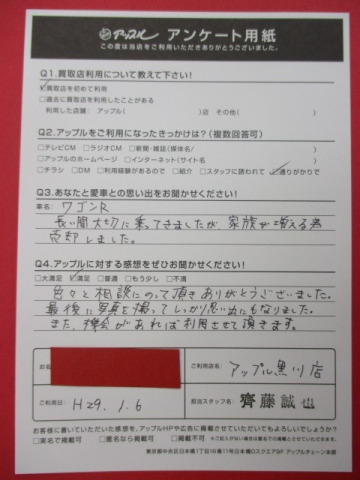 アップル アンケート用紙
この度は当店をご利用いただきありがとうございました。
Q1.買取店利用について教えて下さい!
☑買取店を初めて利用
□過去に買取店を利用したことがある
利用した店舗:アップル( )店 その他( )
Q2.アップルをご利用になったきっかけは?(複数回答可)
□テレビCM □ラジオCM □新聞・雑誌(媒体名/ )
□アップルのホームページ □インターネット(サイト名 )
□チラシ □DM □利用経験があるので □紹介 □スタッフに誘われて ☑通りがかりで
Q3.あなたと愛車との思い出をお聞かせください!
車名: ワゴンR
長い間大切に乗ってきましたが、家族が増える為
売却しました。
Q4.アップルに対する感想をぜひお聞かせください!
□大満足 ☑満足 □普通 □もう少し □不満
色々と相談にのって頂きありがとうございました。
最後に写真を撮ってしっかり思い出にもなりました。
また、機会があれば利用させて頂きます。
お名
ご利用店名: アップル黒川店
ご利用日: H29.1.6
担当スタッフ名: 齊藤誠也
お書きいただいた感想を、アップルHPや広告に掲載させていただいてもよろしいでしょうか?
□実名で掲載可 □匿名なら掲載可 □掲載不可 ※ご記入がない場合は匿名での掲載とさせていただきます。
東京都中央区日本橋1丁目16番11号日本橋Dスクエア9F アップルチェーン本部